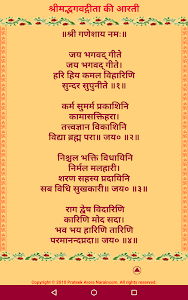 श्रीमद्भगवद्गीता की आरती
॥श्री गणेशाय नमः॥
जय भगवद् गीते
जय भगवद् गीते।
हरि हिय कमल विहारिणि
सुन्दर सुपुनीते ॥१॥
कर्म सुमर्म प्रकाशिनि
कामासक्तिहरा।
तत्त्वज्ञान विकाशिनि
विद्या ब्रह्म परा॥ जय० ॥२॥
निश्चल भक्ति विधायिनि
निर्मल मलहारी।
शरण सहस्य प्रदायिनि
सब विधि सुखकारी॥ जय० ॥३॥
राग द्वेष विदारिणि
कारिणि मोद सदा।
भव भय हारिणि तारिणि
परमानन्दप्रदा॥ जय० ॥४॥
Copyright © 2015 Prateek Arora Naraincorn. All rights reserved.